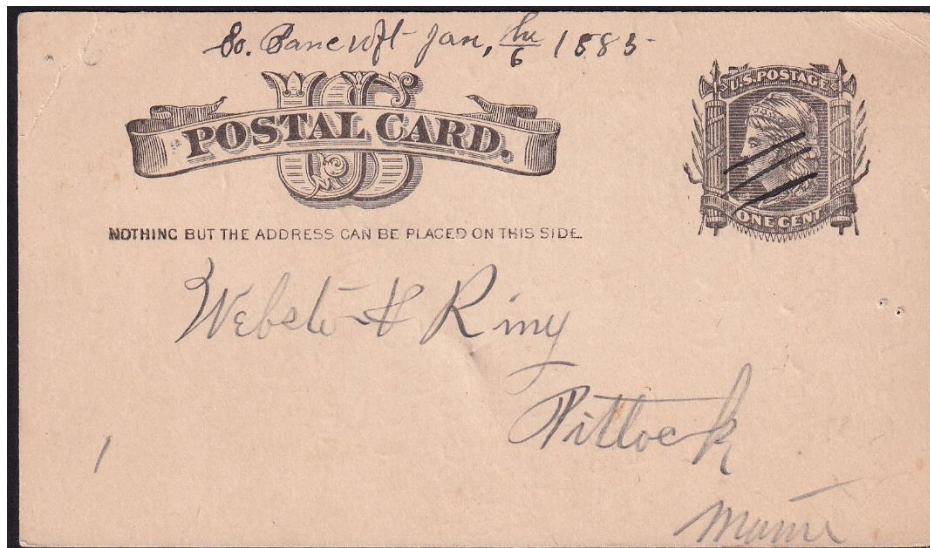 So. Bancroft Jan, the/6 1883
U.S. POSTAGE
US
POSTAL CARD.
ONE CENT
NOTHING BUT THE ADDRESS CAN BE PLACED ON THIS SIDE.
Webster & Ring
Pittock
Maine